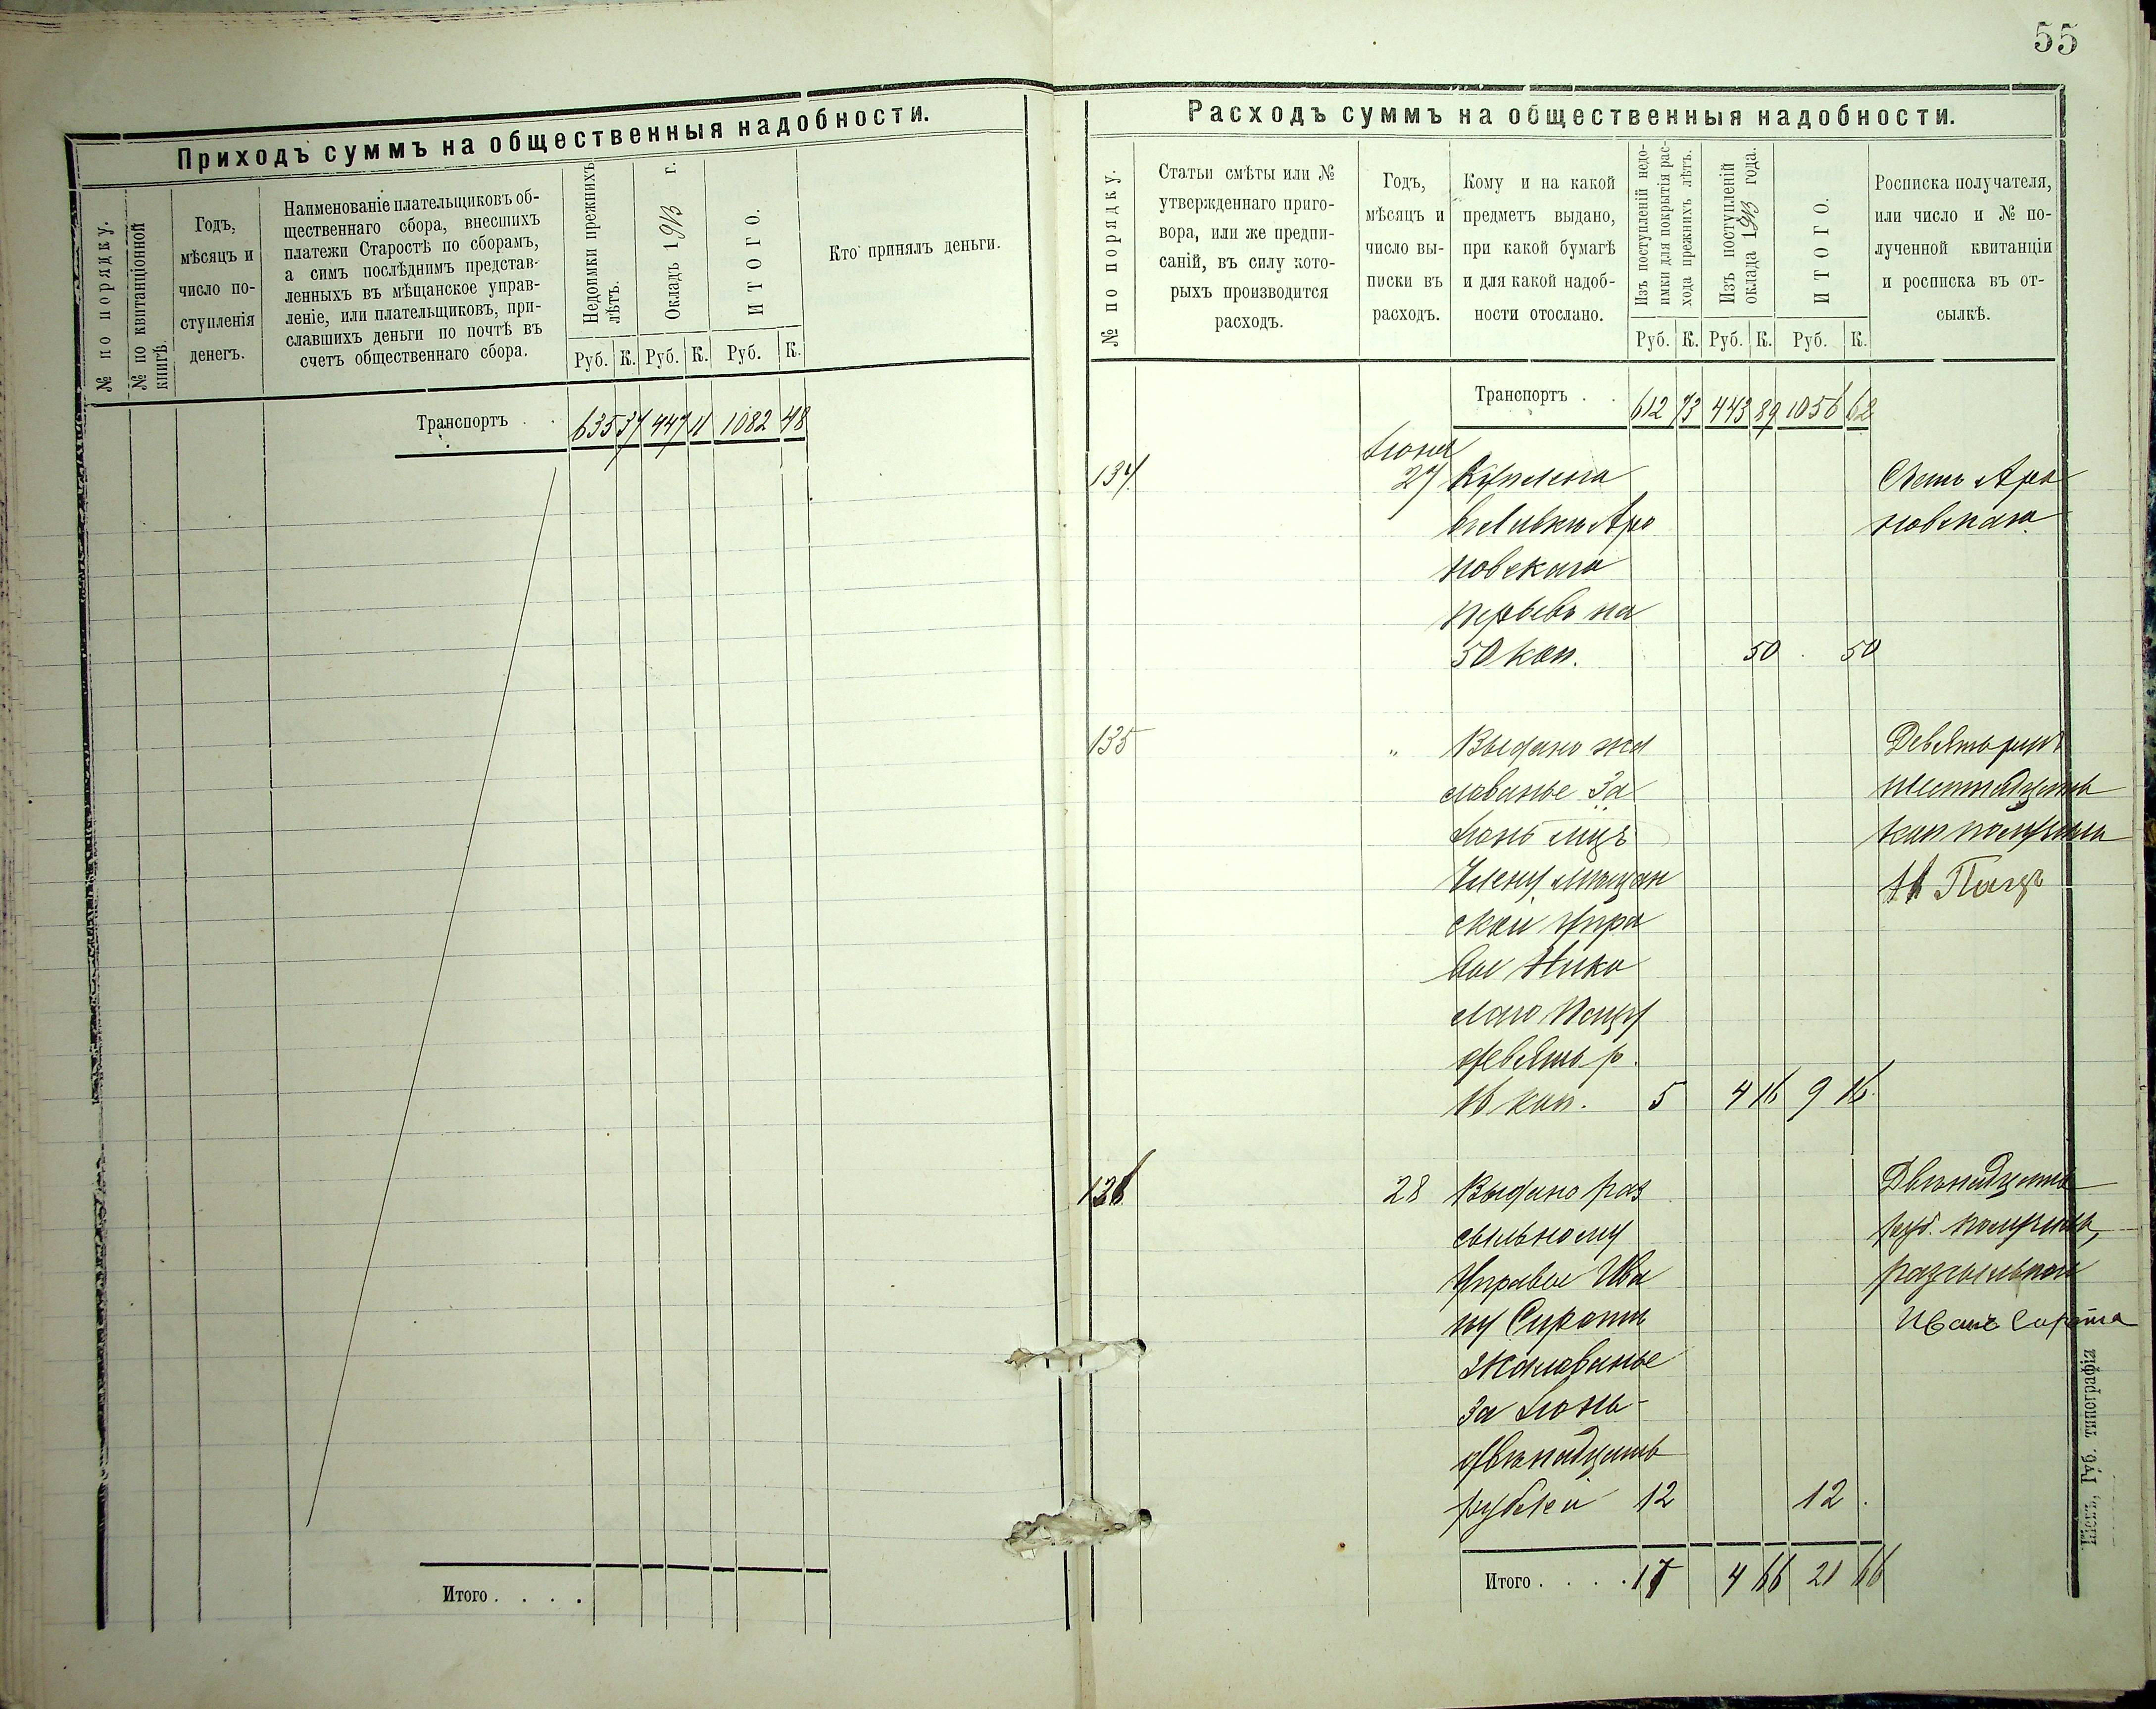 55
Приходъ суммъ на общественныя надобности.
№ по порядку.
№ по квитанціонной
книгѣ.
Годъ,
мѣсяцъ и
число по-
ступленія
денегъ.
Наименованіе плательщиковъ об-
щественнаго сбора, внесшихъ
платежи Старостѣ по сборамъ,
а симъ послѣднимъ представ-
ленныхъ въ мѣщанское управ-
леніе, или плательщиковъ, при-
славшихъ деньги по почтѣ въ
счетъ общественнаго сбора.
Недоимки прежнихъ
лѣтъ.
Окладъ 1913 г.
ИТОГО.
Руб. К. Руб. К. Руб. К.
Кто принялъ деньги.
Транспортъ . . 635 37 447 11 1082 48
Итого . . . .
Расходъ суммъ на общественныя надобности.
№ по порядку.
Статьи смѣты или №
утвержденнаго приго-
вора, или же предпи-
саній, въ силу кото-
рыхъ производится
расходъ.
Годъ,
мѣсяцъ и
число вы-
писки въ
расходъ.
Кому и на какой
предметъ выдано,
при какой бумагѣ
и для какой надоб-
ности отослано.
Изъ поступленій недо-
имки для покрытія рас-
хода прежнихъ лѣтъ.
Изъ поступленій
оклада 1913 года.
ИТОГО.
Руб. К. Руб. К. Руб. К.
Росписка получателя,
или число и № по-
лученной квитанціи
и росписка въ от-
сылкѣ.
Транспортъ . . 612 73 443 89 1056 62
Іюня
134 27 Куплено Счетъ Аро
въ лавкѣ Аро новскаго
новскаго
перьевъ на
50 коп. 50 . 50
135 " Выдано жа Девять руб
лованье За шестнадцать
Іюнь мцъ коп получилъ
Члену мѣщан Н Пацъ
ской Упра
вы Нико
лаю Пацу
девять р.
16 коп. 5 4 16 9 16.
136 28 Выдано раз Двѣнадцать
сыльному руб. получилъ,
Управы Ива разсыльной
ну Сиротѣ Иванъ Сирота
Жалованье
За Іюнь -
двѣнадцать
рублей 12 12 .
Итого . . . . 17 4 66 21 66
Кіевъ, Губ. типографія